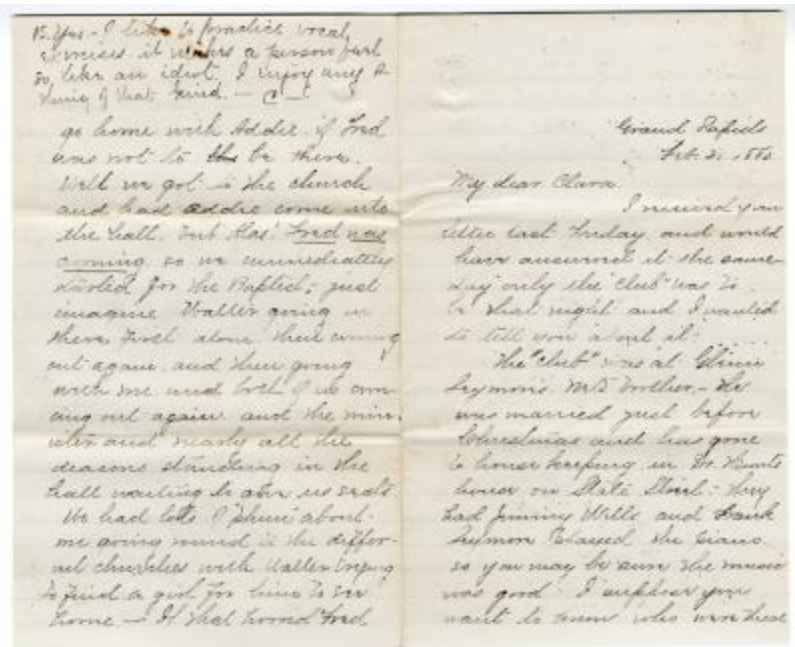 P.S. Yes - I like to practice vocal
exercises it makes a person feel
so like an idiot. I enjoy any
thing of that kind. - C -
go home with Addie if Fred
was not to be there.
Well we got to the church
and had Addie come into
the hall. But Alas! Fred was
coming so we immediately
started for the Baptist; just
imagine Walter going in
there first alone then coming
out again and then going
with me and both of us com
ing out again and the min
ister and nearly all the
deacons standing in the
hall waiting to us seats.
We had lots of about
me going round to the differ-
ent churches with Walter trying
to find a girl for him to see
home - If that horrid Fred
Grand Rapids
Feb. 2
My dear Clara.
I received your
letter last Friday and would
have answered it the same
day only the "club" was to
be that night and I wanted
to tell you about it.
The "club" was at
Seymour's. brother - He
was married just before
Christmas and has gone
to house keeping in Dr.
house on State Street - They
had Jimmy Wills and Frank
Seymour played the piano
so you may be sure the music
was good. I suppose you
want to know who were there